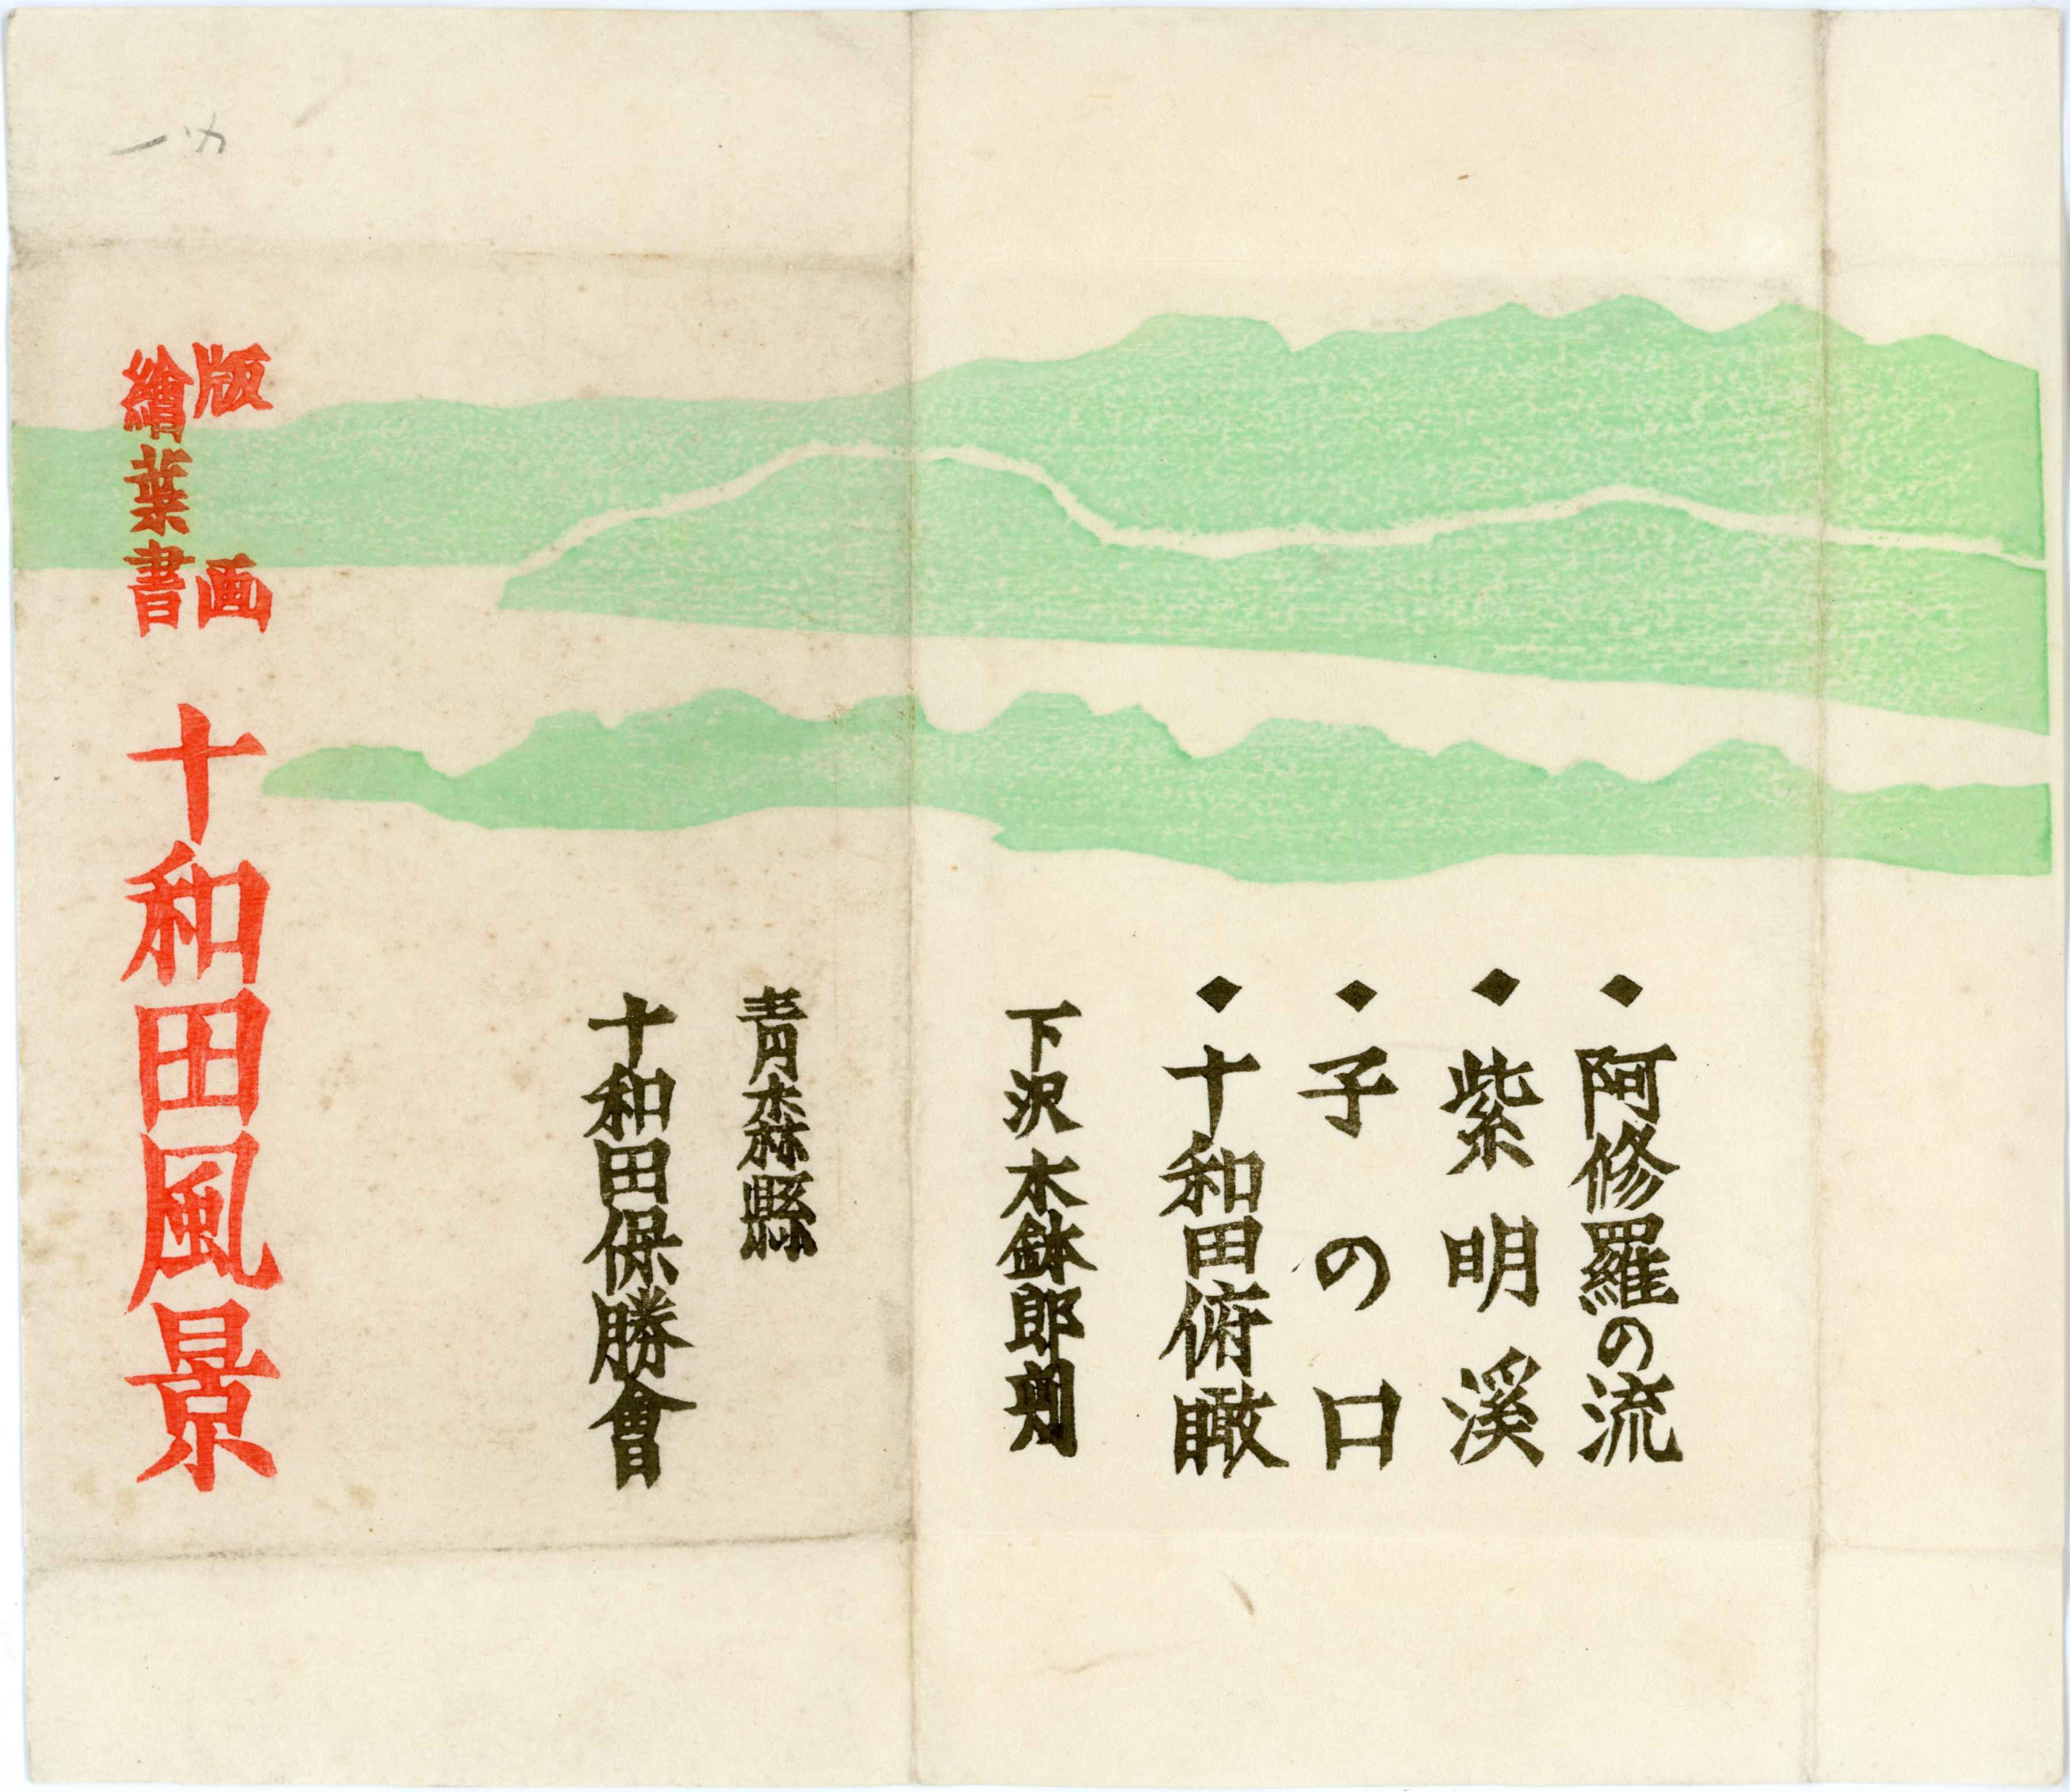 ◆阿修羅の流
◆紫明溪
◆子の口
◆十和田俯瞰
下沢木鉢郎刻
青森縣
十和田保勝會
版画
繪葉書
十和田風景